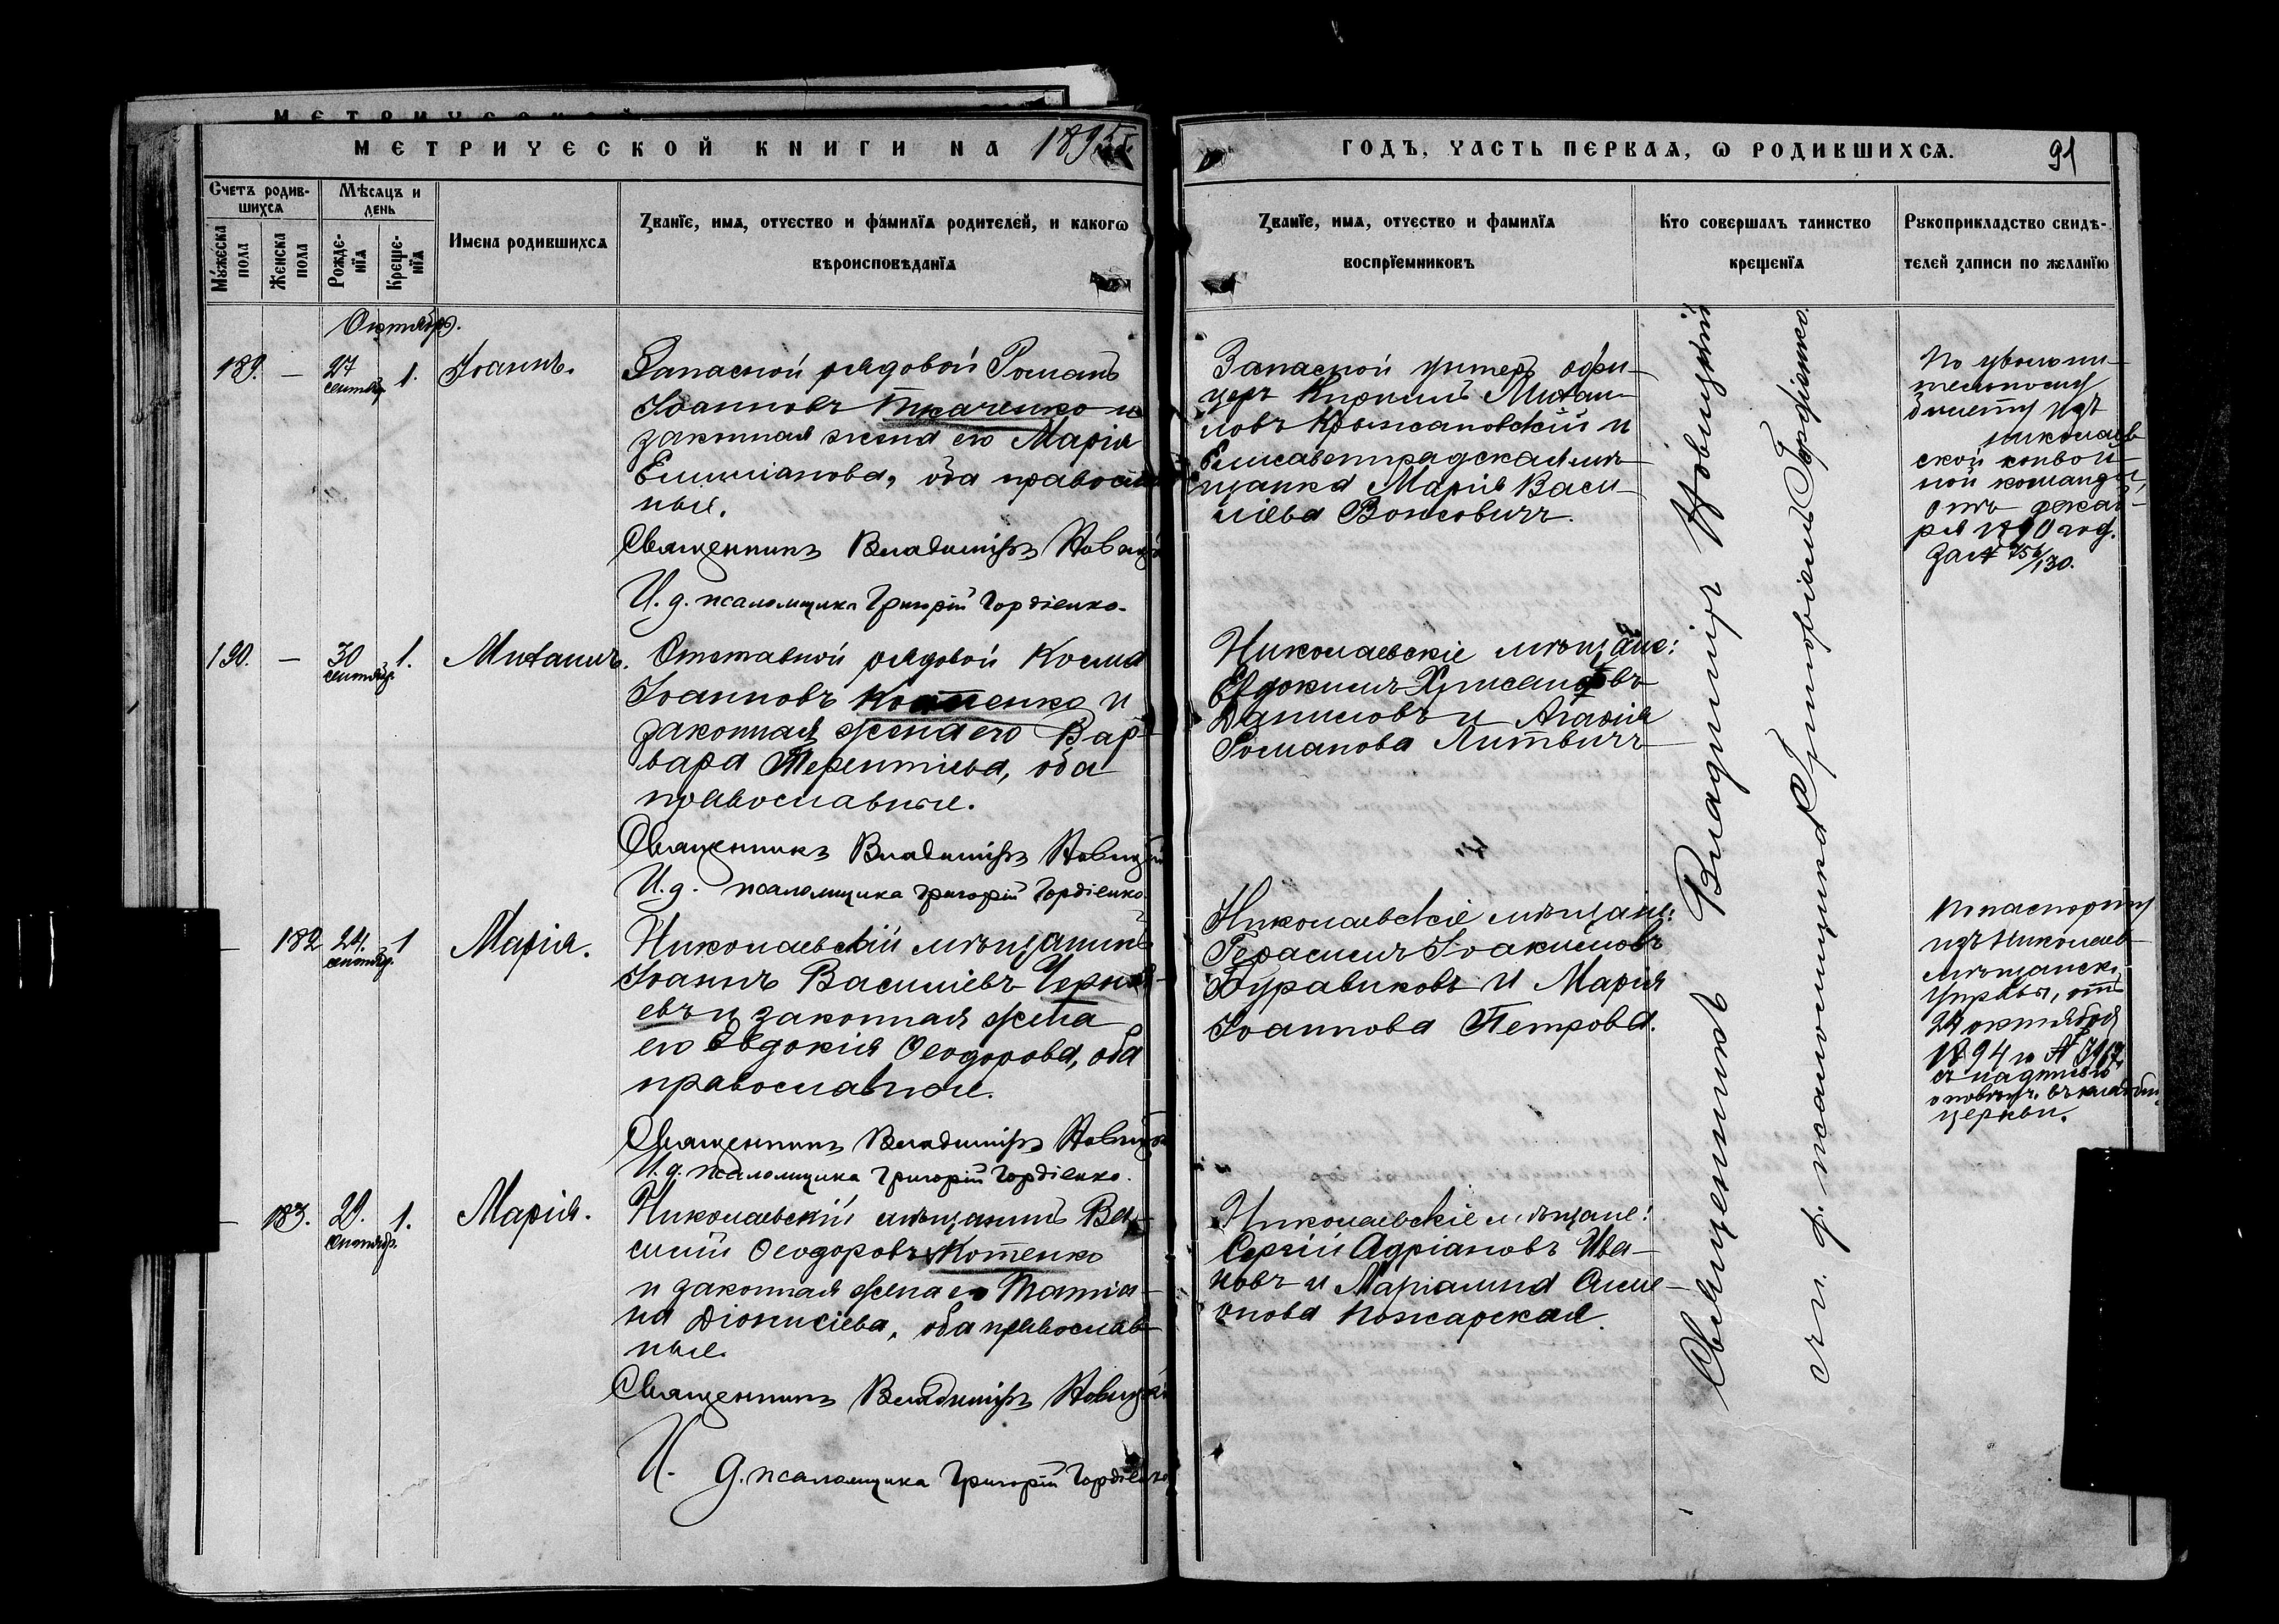 МЕТРИЧЕСКОЙ КНИГИ НА 1895
ГОДЪ, ЧАСТЬ ПЕРВАЯ, Ѡ РОДИВШИХСѦ.
91
Счетъ родив-
шихсѧ
Мѣсѧцъ и
день
Мужеска пола
Женска пола
Рожде-
нїѧ
Креще-
нїѧ
Имена родившихсѧ
Званїе, имѧ, отчество и фамилїѧ родителей, и какогѡ
вѣроисповѣданїѧ
Званїе, имѧ, отчество и фамилїѧ
воспрїемниковъ
Кто совершалъ таинство
крещенїѧ
Рукоприкладство свидѣ-
телей записи по желанїю
Октябрь.
189. — 27 сентяб. 1. Іоаннъ.
Запасной рядовой Романъ
Іоанновъ Ткаченко и
законная жена его Марія
Емиліанова, оба православ
ные.
Священникъ Владиміръ Новицкій
И. д. псаломщика Григорій Гордіенко.
Запасной унтеръ офи-
церъ Кириллъ Михаи-
ловъ Крыжановскій и
Елисаветградская мѣ-
щанка Марія Васи-
ліева Вонсовичъ.
По увольни-
тельному
билету изъ
николаев
ской конвой
ной команды,
отъ декаб-
ря 1890 год.
за № 756/130.
190. — 30 сентябр. 1. Михаилъ.
Отставной рядовой Косма
Іоанновъ Котенко и
законная жена его Вар-
вара Терентіева, оба
православные.
Священникъ Владиміръ Новицкій
И. д. псаломщика Григорій Гордіенко
Николаевскіе мѣщане:
Евдокимъ Хрисанфовъ
Даниловъ и Агафія
Романова Литвичъ
— 182 24. сентябр. 1 Марія.
Николаевскій мѣщанинъ
Іоаннъ Василіевъ Черня-
евъ и законная жена
его Евдокія Ѳеодорова, оба
православные.
Священникъ Владиміръ Новицкій
И. д. псаломщика Григорій Гордіенко.
Николаевскіе мѣщане:
Герасимъ Іоакимовъ
Буравиковъ и Марія
Іоаннова Петрова.
По паспорту
изъ Николаев
мѣщанск.
управы, отъ
24 октября
1894 г №
съ надписью
церкви.
— 183. 29. сентябр. 1. Марія.
Николаевскій мѣщанинъ Ва-
силій Ѳеодоровъ Котенко
и законная жена его Татіа-
на Діонисіева, оба православ-
ные.
Священникъ Владиміръ Новицкій
И. д. псаломщика Григорій Гордіенко
Николаевскіе мѣщане:
Сергій Адріановъ Ива-
новъ и Маріамна Симе-
онова Пожарская.
Священникъ Владиміръ Новицкій
съ и. д. псаломщика Григоріемъ Гордіенко.